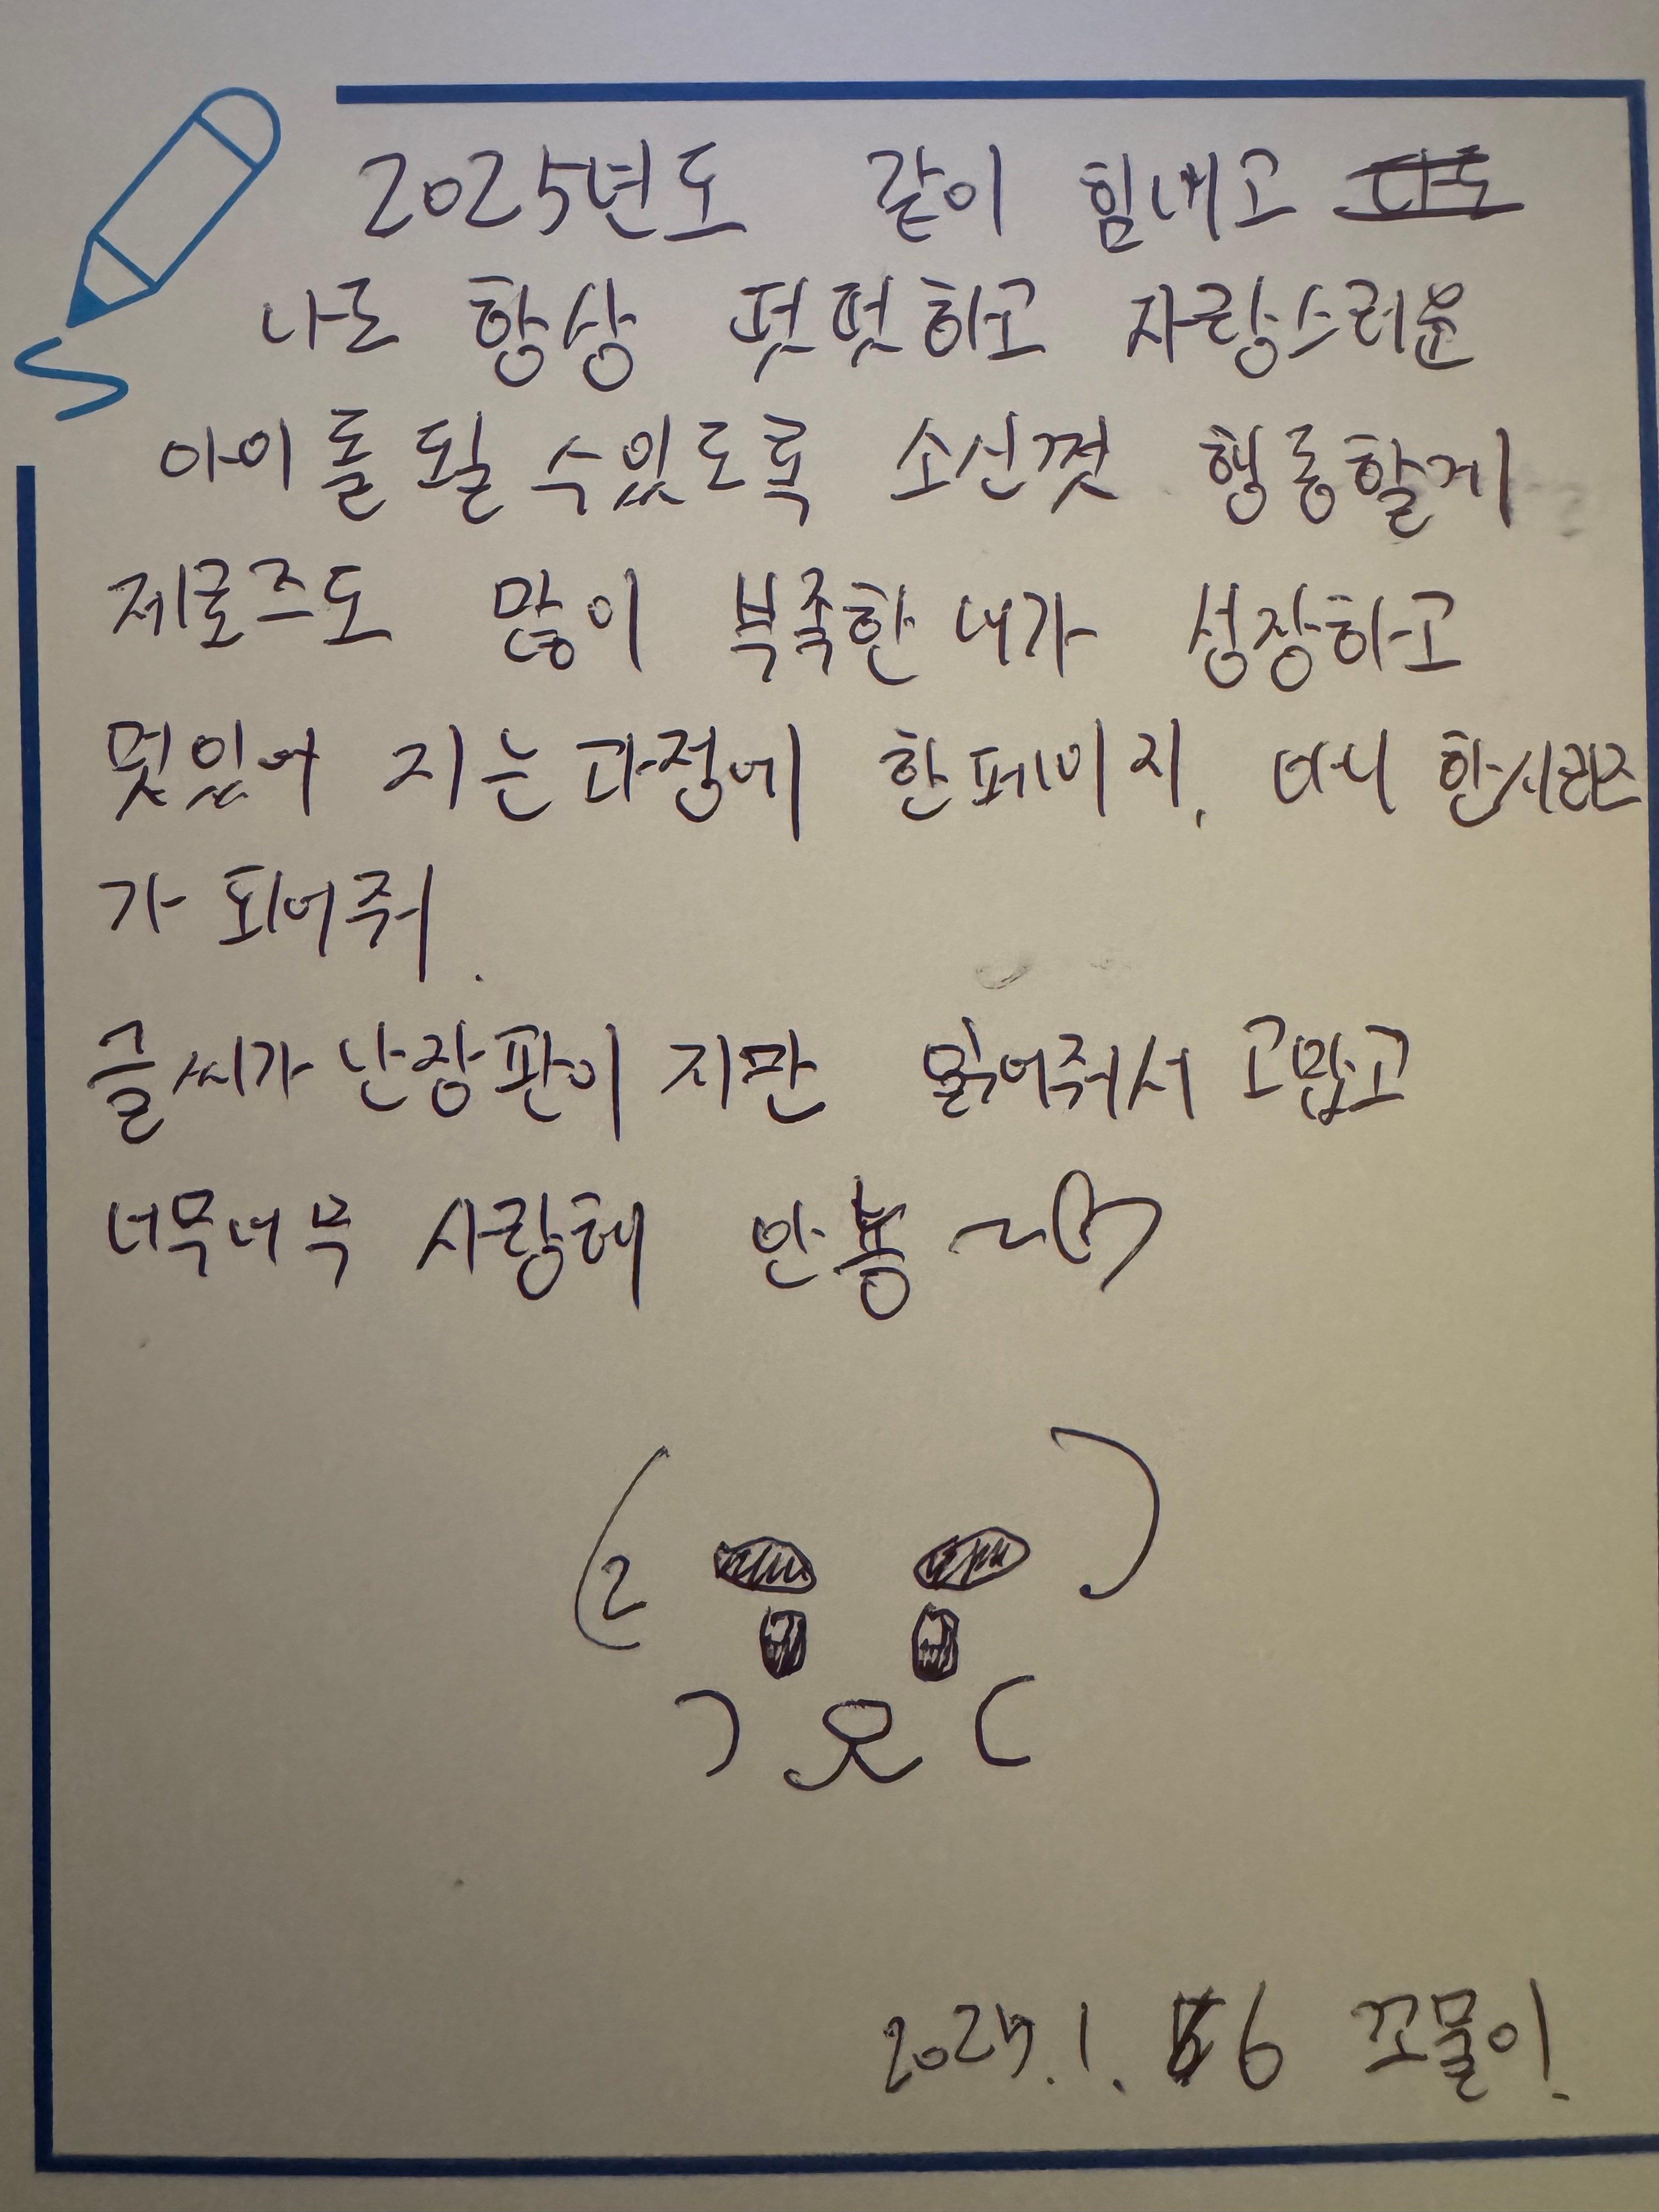 2025년도 같이 힘내고
나도 항상 떳떳하고 자랑스러운
아이돌 될 수있도록 소신껏 행동할게
제로즈도 많이 부족한 내가 성장하고
멋있어 지는 과정에 한페이지, 아니 한시리즈
가 되어줘.
글씨가 난장판이 지만 읽어줘서 고맙고
너무너무 사랑해 안뇽~♡
2025.1.6 꼬물이.